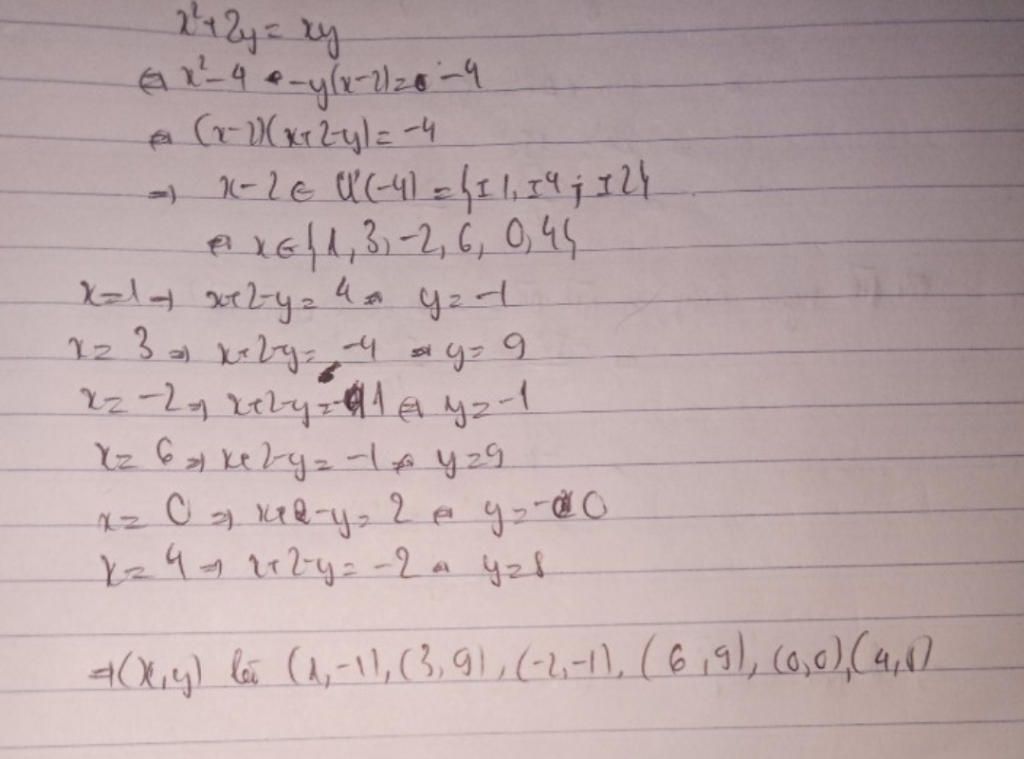 x²+2y = xy
⇔ x²-4 -y(x-2)= -4
⇔ (x-2)(x+2-y)= -4
⇒ x-2 ∈ Ư(-4) = {±1, ±4; ±2}
⇔ x∈{1, 3, -2, 6, 0, 4}
x=1 ⇒ x+2-y = 4 ⇔ y = -1
x = 3 ⇒ x+2-y = -4 ⇔ y = 9
x = -2 ⇒ x+2-y = 1 ⇔ y = -1
x = 6 ⇒ x+2-y = -1 ⇔ y = 9
x = 0 ⇒ x+2-y = 2 ⇔ y = 0
x = 4 ⇒ x+2-y = -2 ⇔ y = 8
⇒(x,y) là (1,-1), (3,9), (-2,-1), (6,9), (0,0), (4,8)